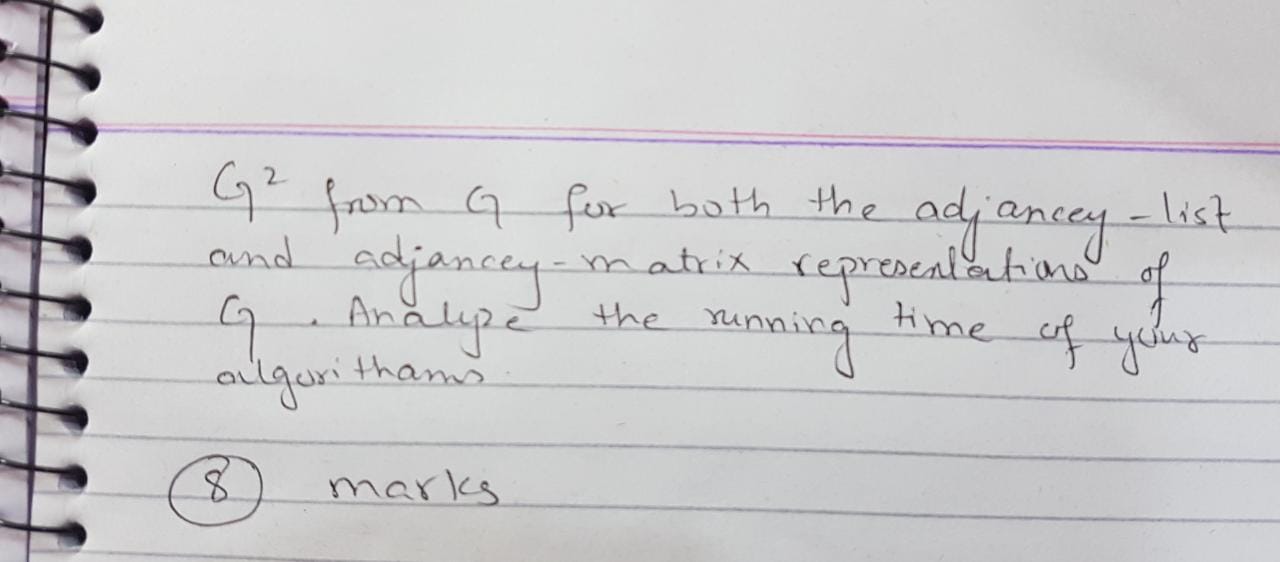 G² from G for both the adjancey-list
and adjancey-matrix representations of
G. Analyze the running time of your
algorithams.
8 marks